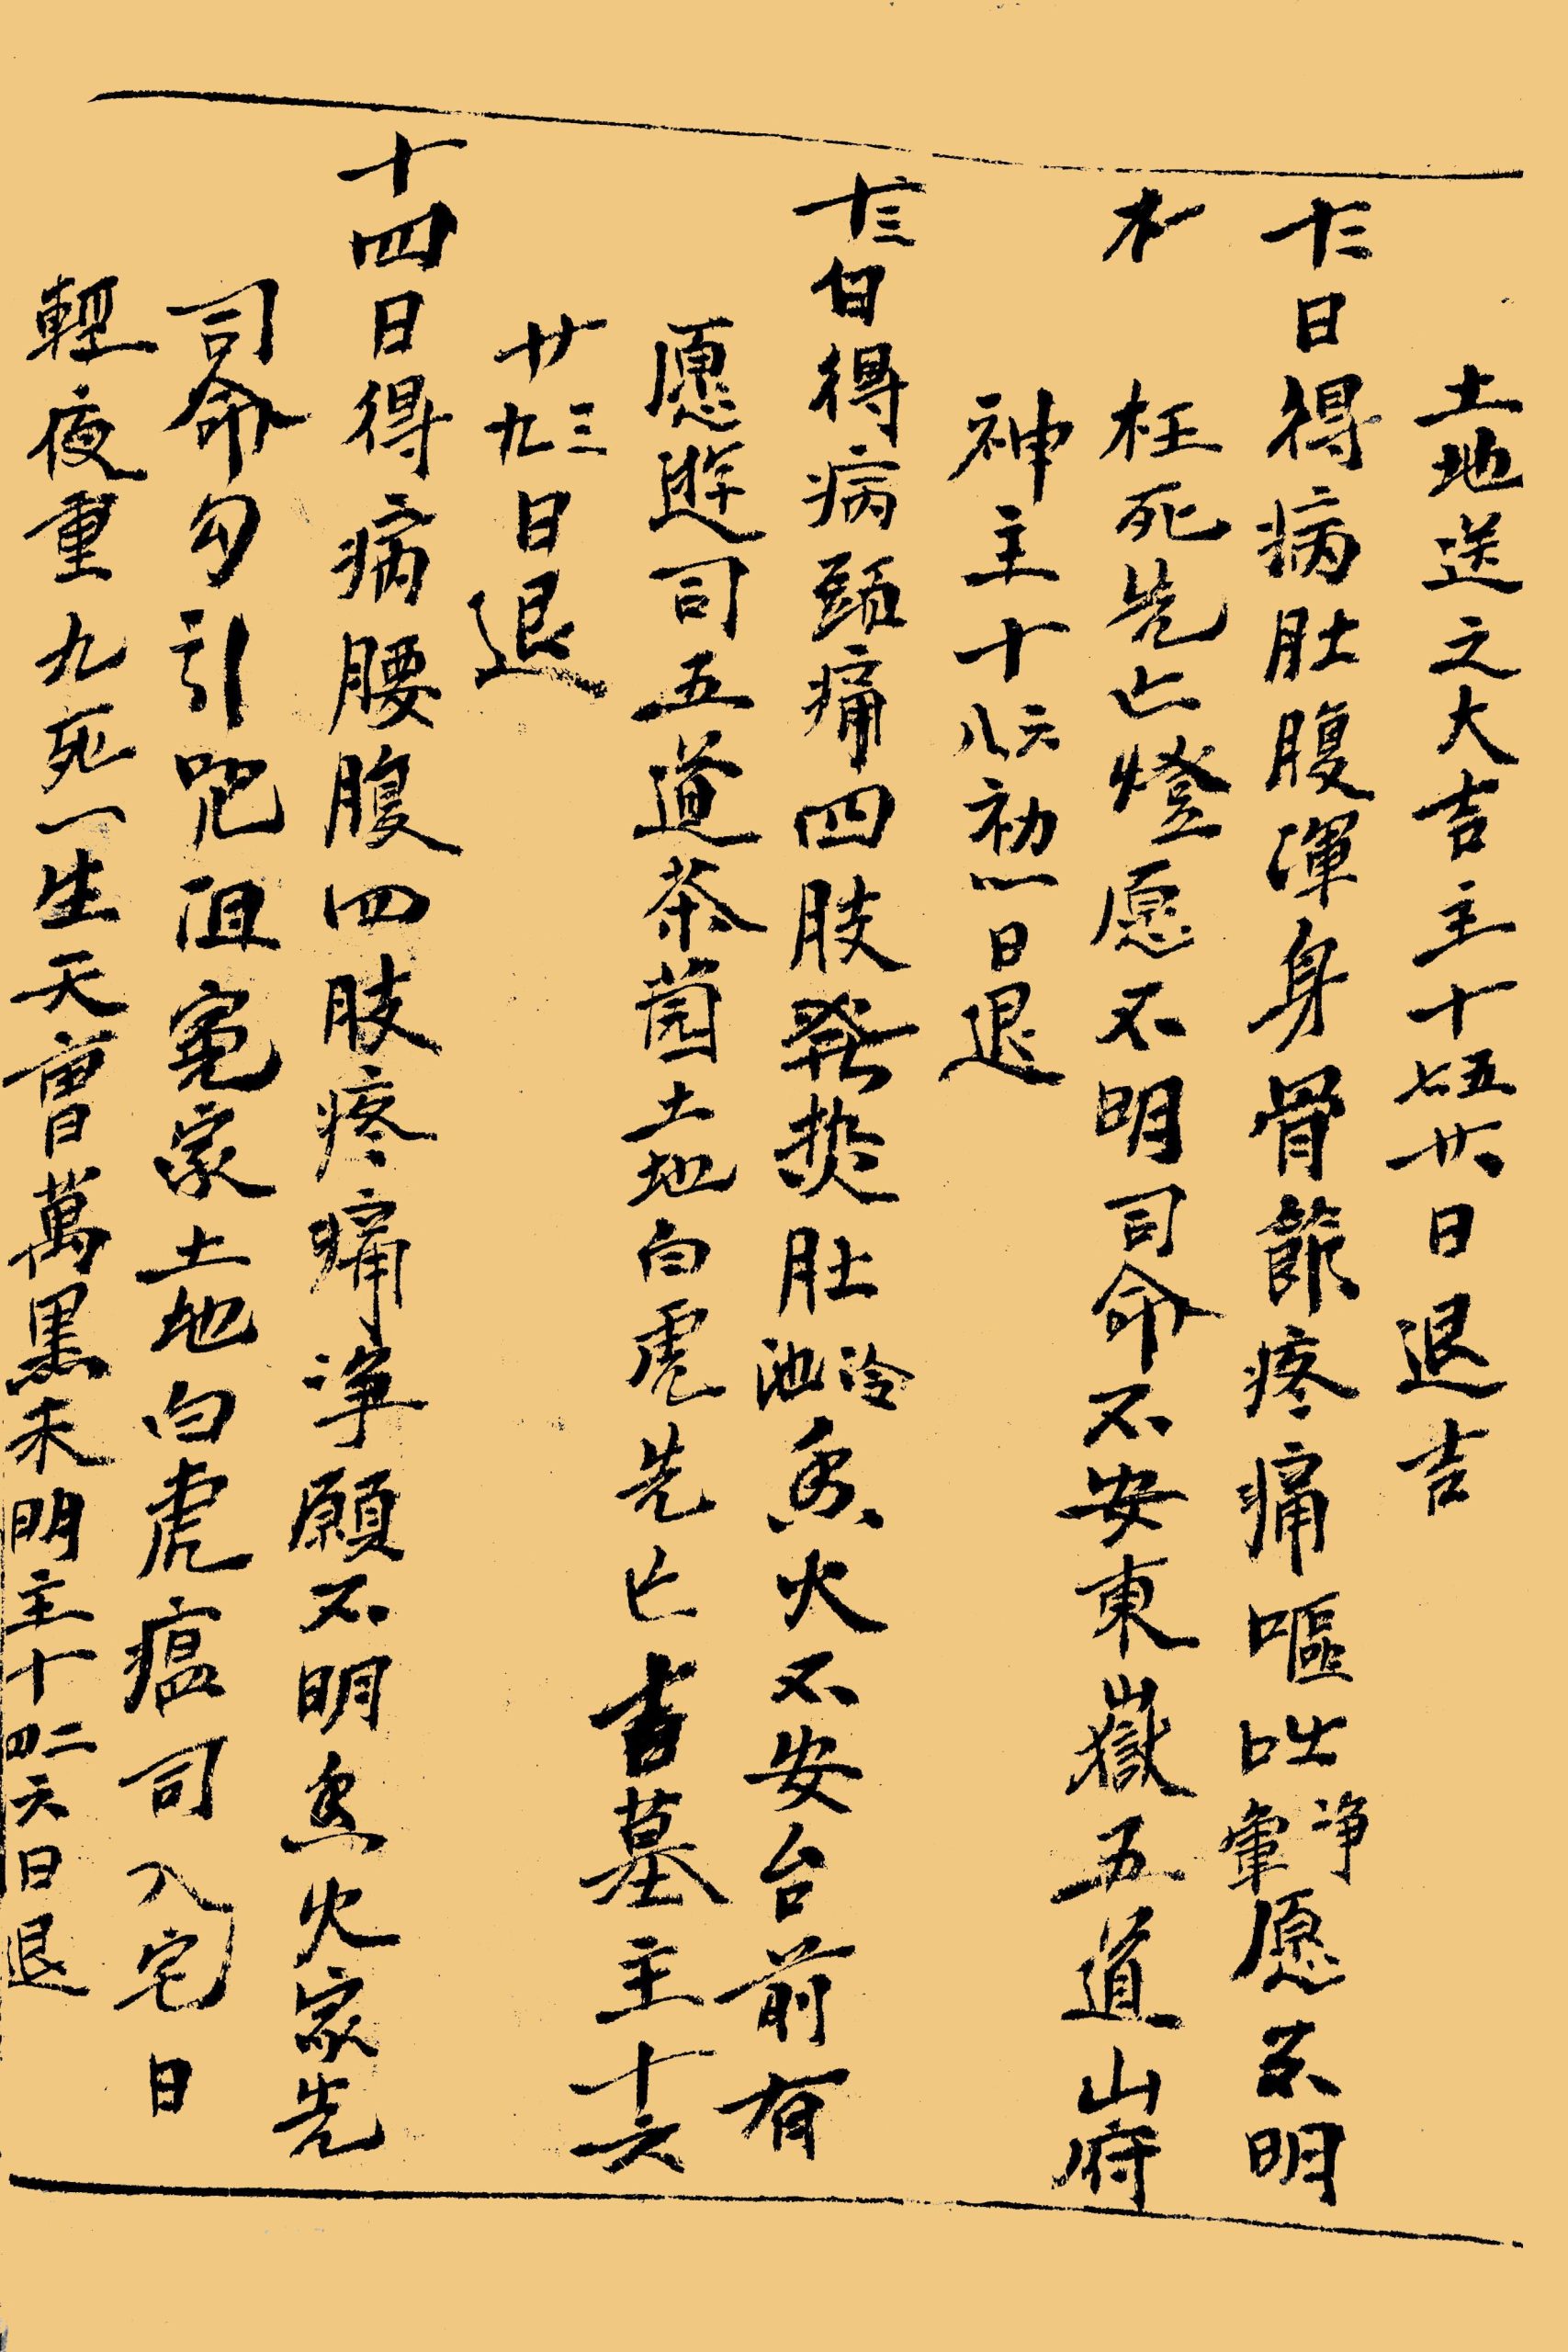 土地送之大吉主十五七廿六日退吉
十二日得病肚腹渾身骨節疼痛嘔吐净愿不明
枉死先亡燈愿不明司命不安東嶽五道山府
神主十六八初一日退
十三日得病頭痛四肢發热肚冷池火不安台前有
愿遊司五道茶园土地白虎先亡古墓主十六
廿三九日退
十四日得病腰腹四肢疼痛净願不明火家先
司命勾引咒咀冤家土地白虎瘟司入宅日
輕夜重九死一生天曹萬黑未明主十二四六日退